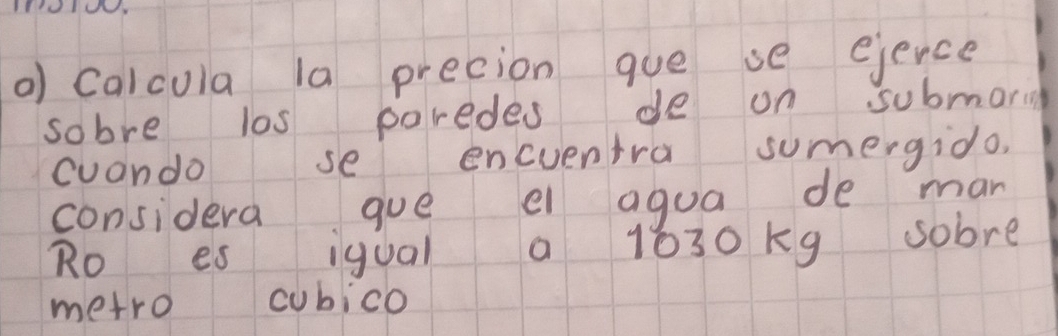 a) Calcula la precion que se ejerce
sobre los paredes de un
cuando se encuentra sumergido.
considera que el agua de mar
Ro es igual a 1030 kg sobre
metro cubico